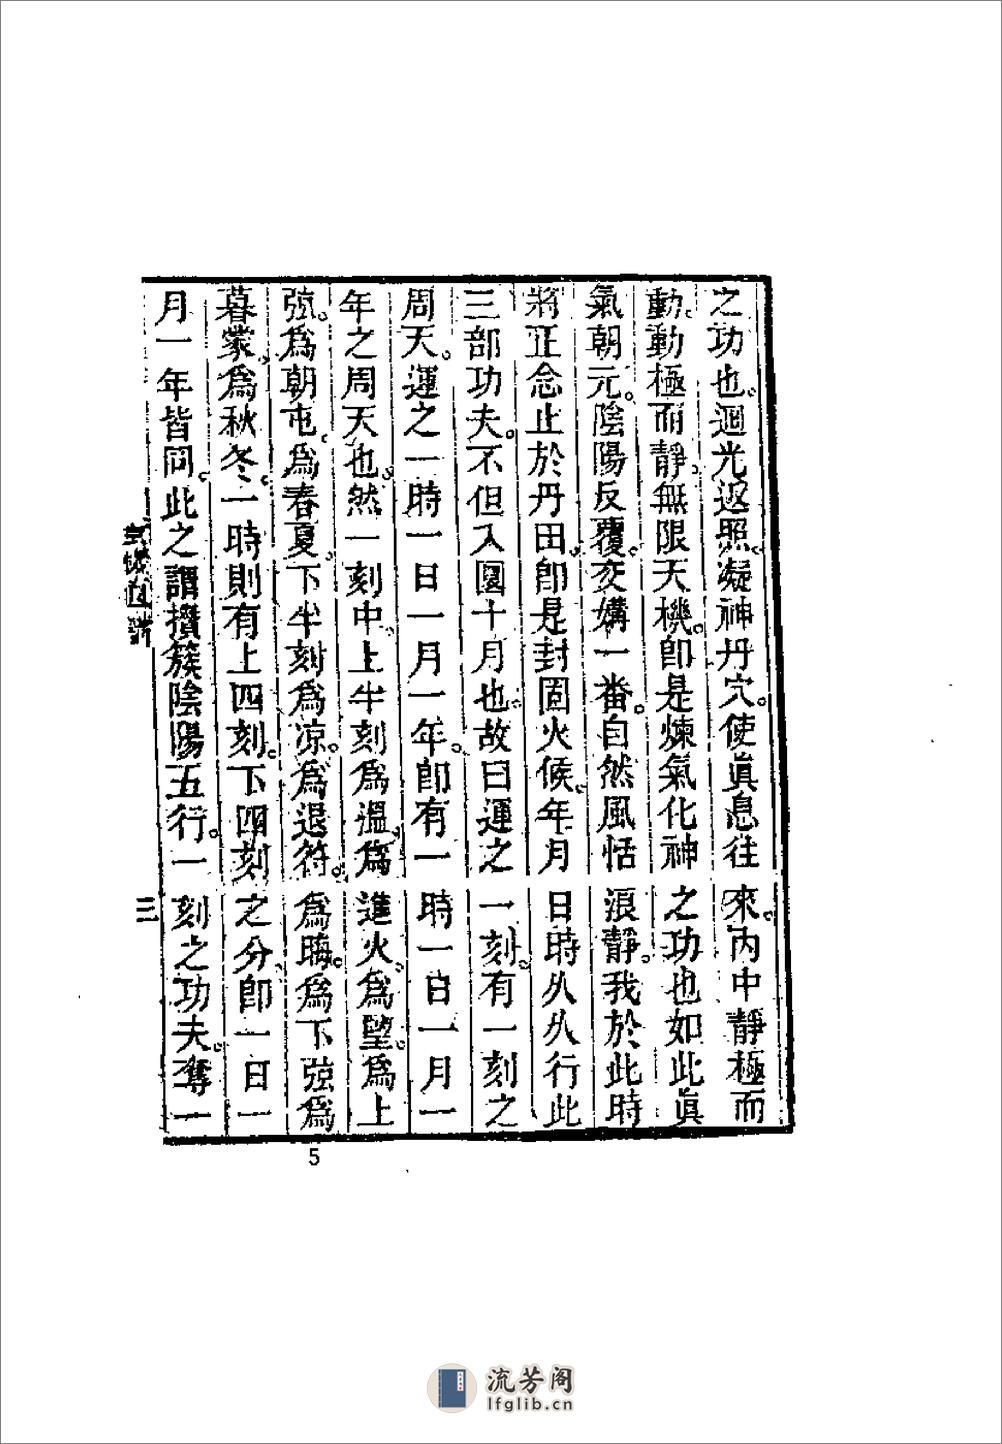 之功也。迴光返照。凝神丹穴。使眞息往來。內中靜極而
動。動極而靜。無限天機。卽是煉氣化神之功也如此眞
氣朝元。陰陽反覆。交媾一番。自然風恬浪靜。我於此時
將正念止於丹田。卽是封固火候。年月日時久久行此
三部功夫。不但入圜十月也。故曰運之一刻。有一刻之
周天。運之一時一日一月一年。卽有一時一日一月一
年之周天也。然一刻中。上半刻爲溫。爲進火。爲望。爲上
弦。爲朝屯。爲春夏。下半刻爲凉。爲退符。爲晦。爲下弦。爲
暮蒙。爲秋冬。一時則有上四刻。下四刻之分。卽一日一
月一年皆同。此之謂攢簇陰陽五行。一刻之功夫。奪一
三
5
流芳阁
lfglib.cn